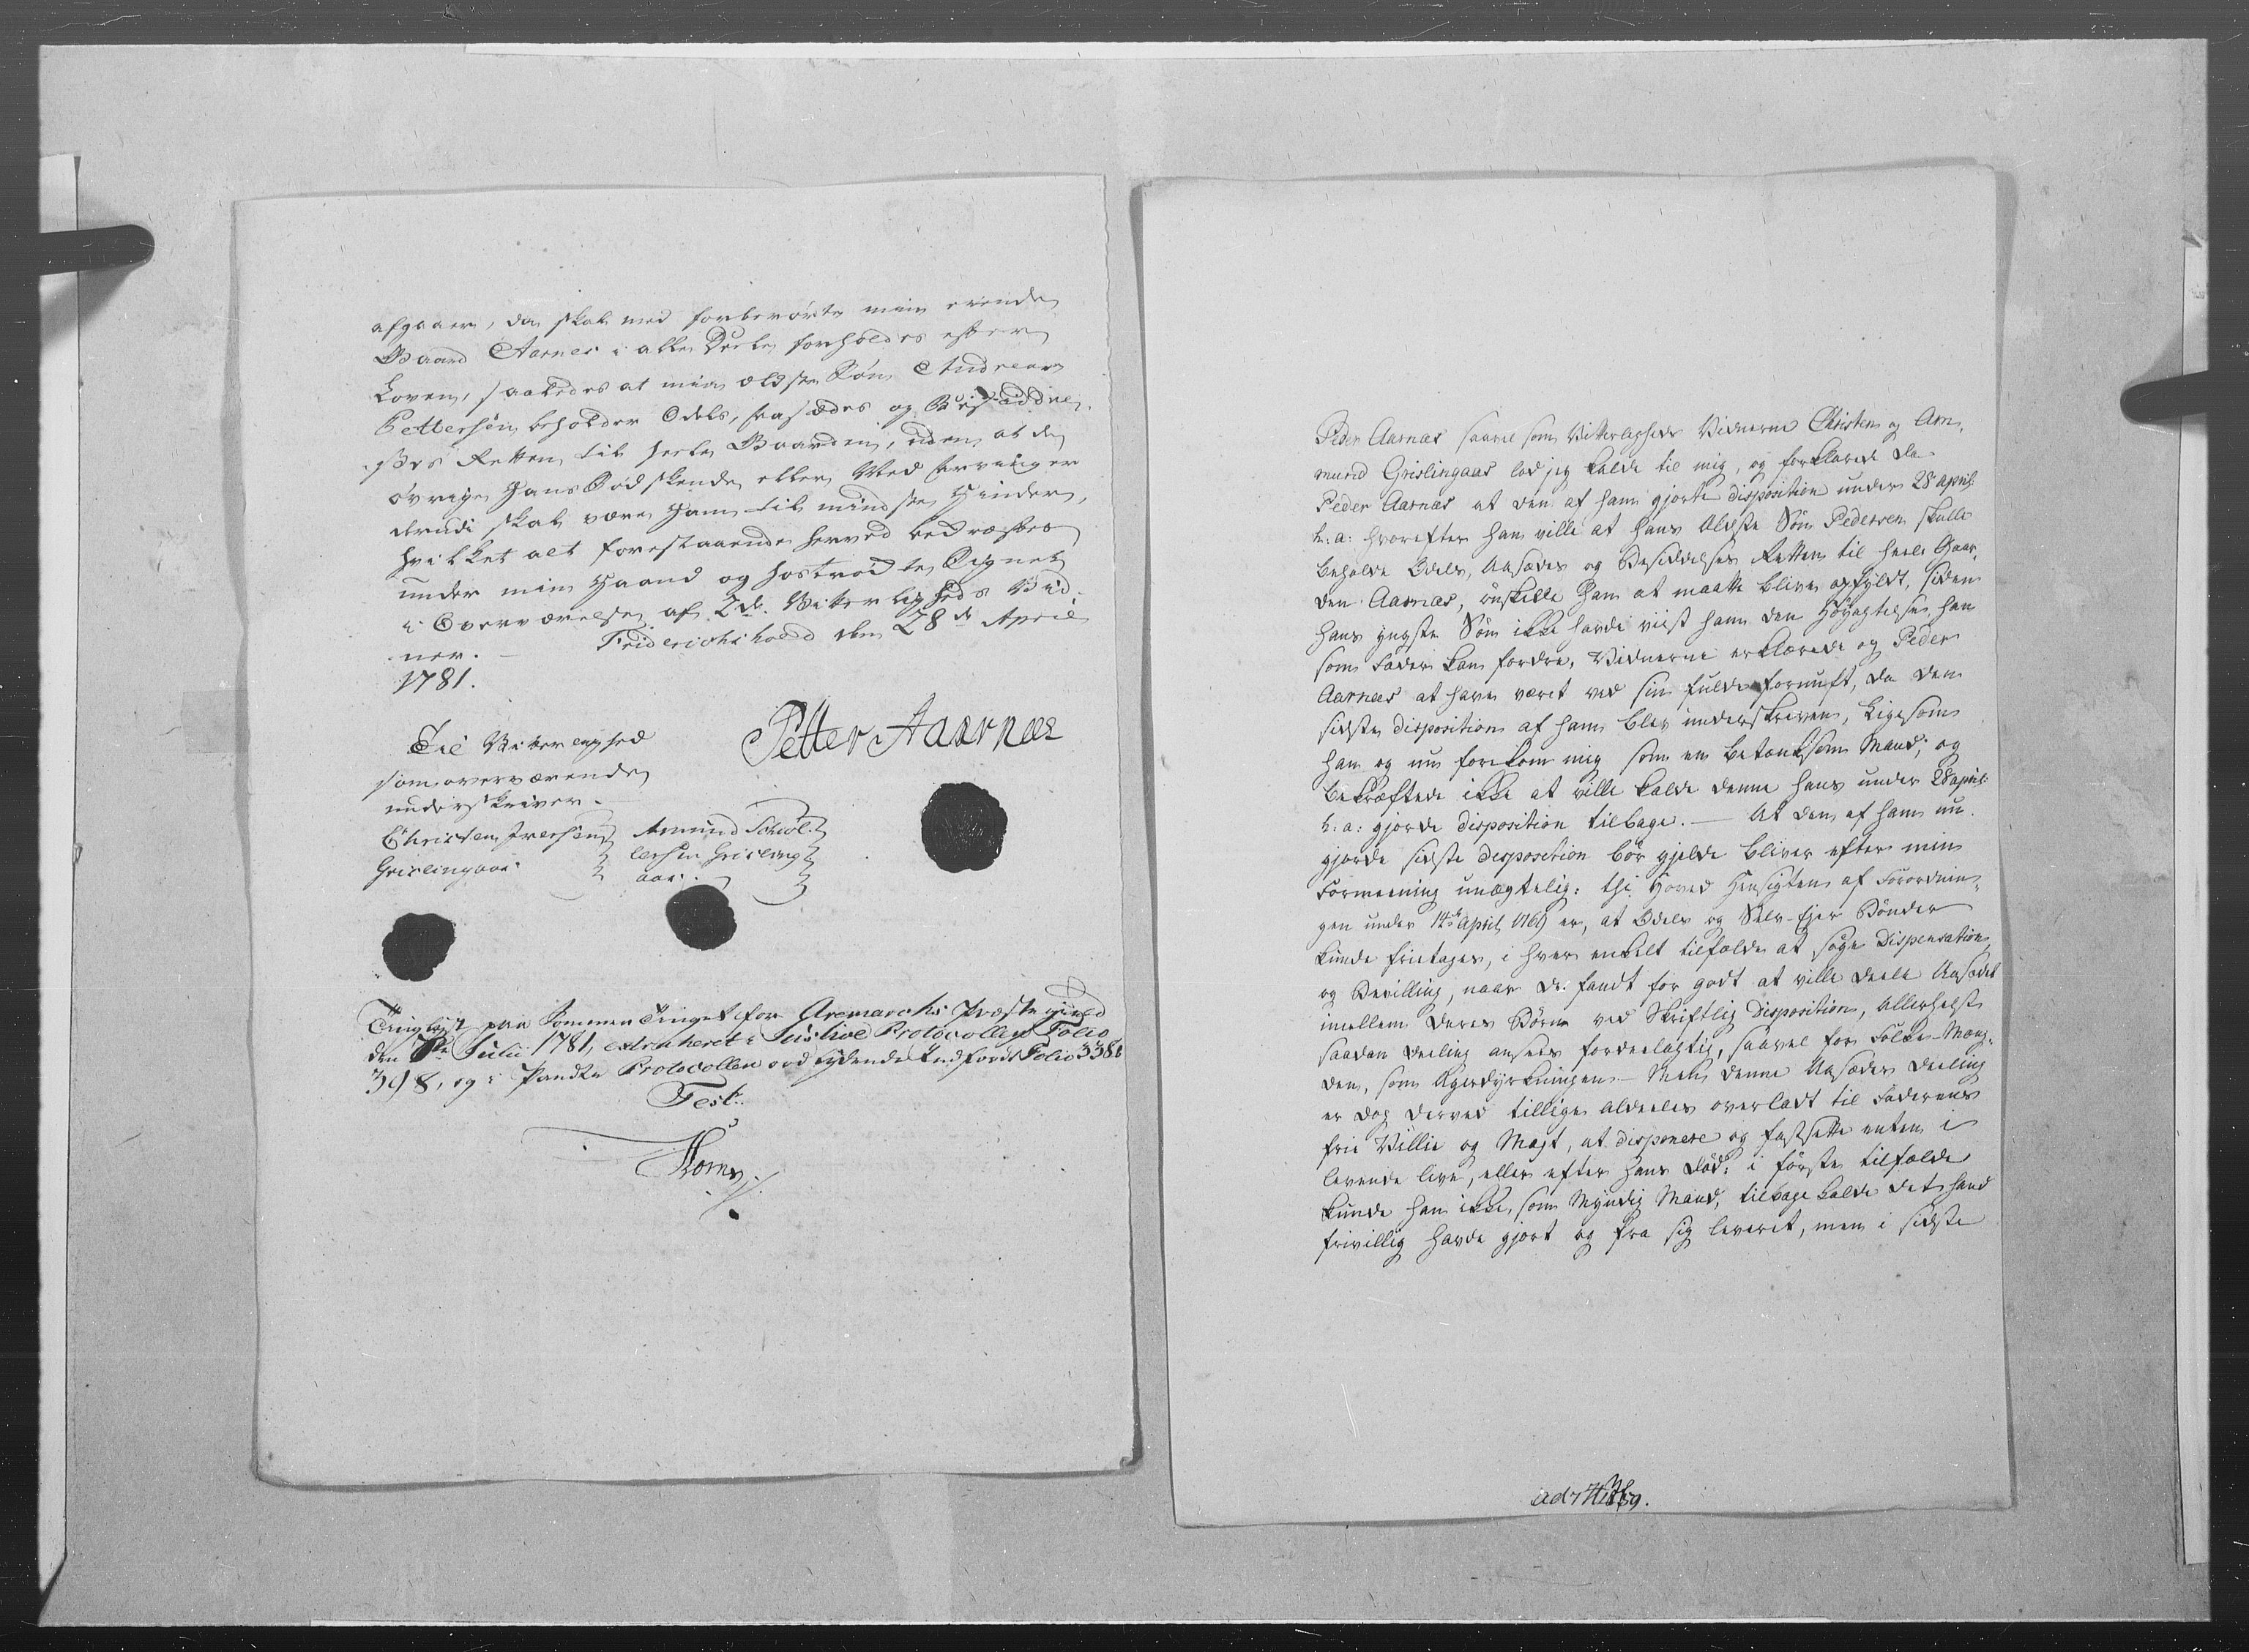 afgaaer, da skal med forberørte min eiende
Gaard Aarnes i alle Deele forholdes efter
Loven, saaledes at min ældste Søn Andreas
Pettersøn beholder Odels, Aasædes og Besiddel
ses Retten til heele Gaarden, uden at de
øvrige Hans Sødskende eller Med Arvinger
derudi skal være Ham til mindste Hinder,
hvilket alt forestaaende herved bekræftes
under min Haand og hostrøgte Signet
i Overværelse af 2de Vitterligheds Vid-
ner. Friderichshald den 28de April
1781.
Petter Aarnes
Til Vitterlighed
som overværende
underskriver.
Christen Iversøn
Grislingaas.
Amund
Grisling
aas.
Tinglyst paa Sommer Tinget for Aremarchs Præstegield
den Julii 1781, extraheret i Justice Protocollen Folio
398, og i Pandte Protocollen ordlydende Indført Folio 338
Test.
Peder Aarnæs saavel som Vitterligheds Vidnerne Christen og Am-
mund Grislingaas lod jeg kalde til mig, og forklarede da
Peder Aarnæs at den af ham gjorte disposition under 28 April
h: a: hvorefter han ville at hans Ældste Søn Pedersen skulle
beholde Odels, Aasædes og Besiddelses Retten til heele Gaar-
den Aarnæs, ønskede Han at maatte blive opfyldt, siden
hans yngste Søn ikke havde viist ham den Høyagtelse, han
som Fader kan fordre, Vidnerne erklærede og Peder
Aarnæs at have været ved sin fulde fornuft, da den
sidste disposition af ham blev underskreven, ligesom
han og nu forekom mig som en betænksom Mand, og
bekræftede ikke at ville kalde denne hans under 28 april:
h: a: gjorde disposition tilbage. — At den af ham nu
gjorde sidste disposition bør gjelde bliver efter min
Formeening unægtelig: thi Hoved Hensigten af Forordnin-
gen under 14de April 1769 er, at Odels og Selv-Ejer Bønder
kunde fritages, i hver enkelt tilfælde at søge Dispensation
og Bevilling, naar de fandt for godt at ville deele Aasædet
imellem deres Børn ved Skriftlig Disposition, allerhelst
saadan deeling ansees fordeelagtig, saavel for Folke-Mæng-
den, som Agerdyrkningen — Men denne Aasædes Deeling
er dog derved tillige aldeeles overladt til Faderens
frie Villie og Magt, at disponere og fastsætte enten i
levende live, eller efter hans Død: i første tilfælde
kunde han ikke, som Myndig Mand, tilbage kalde det hand
frivillig havde gjort og fra sig leveret, men i sidste